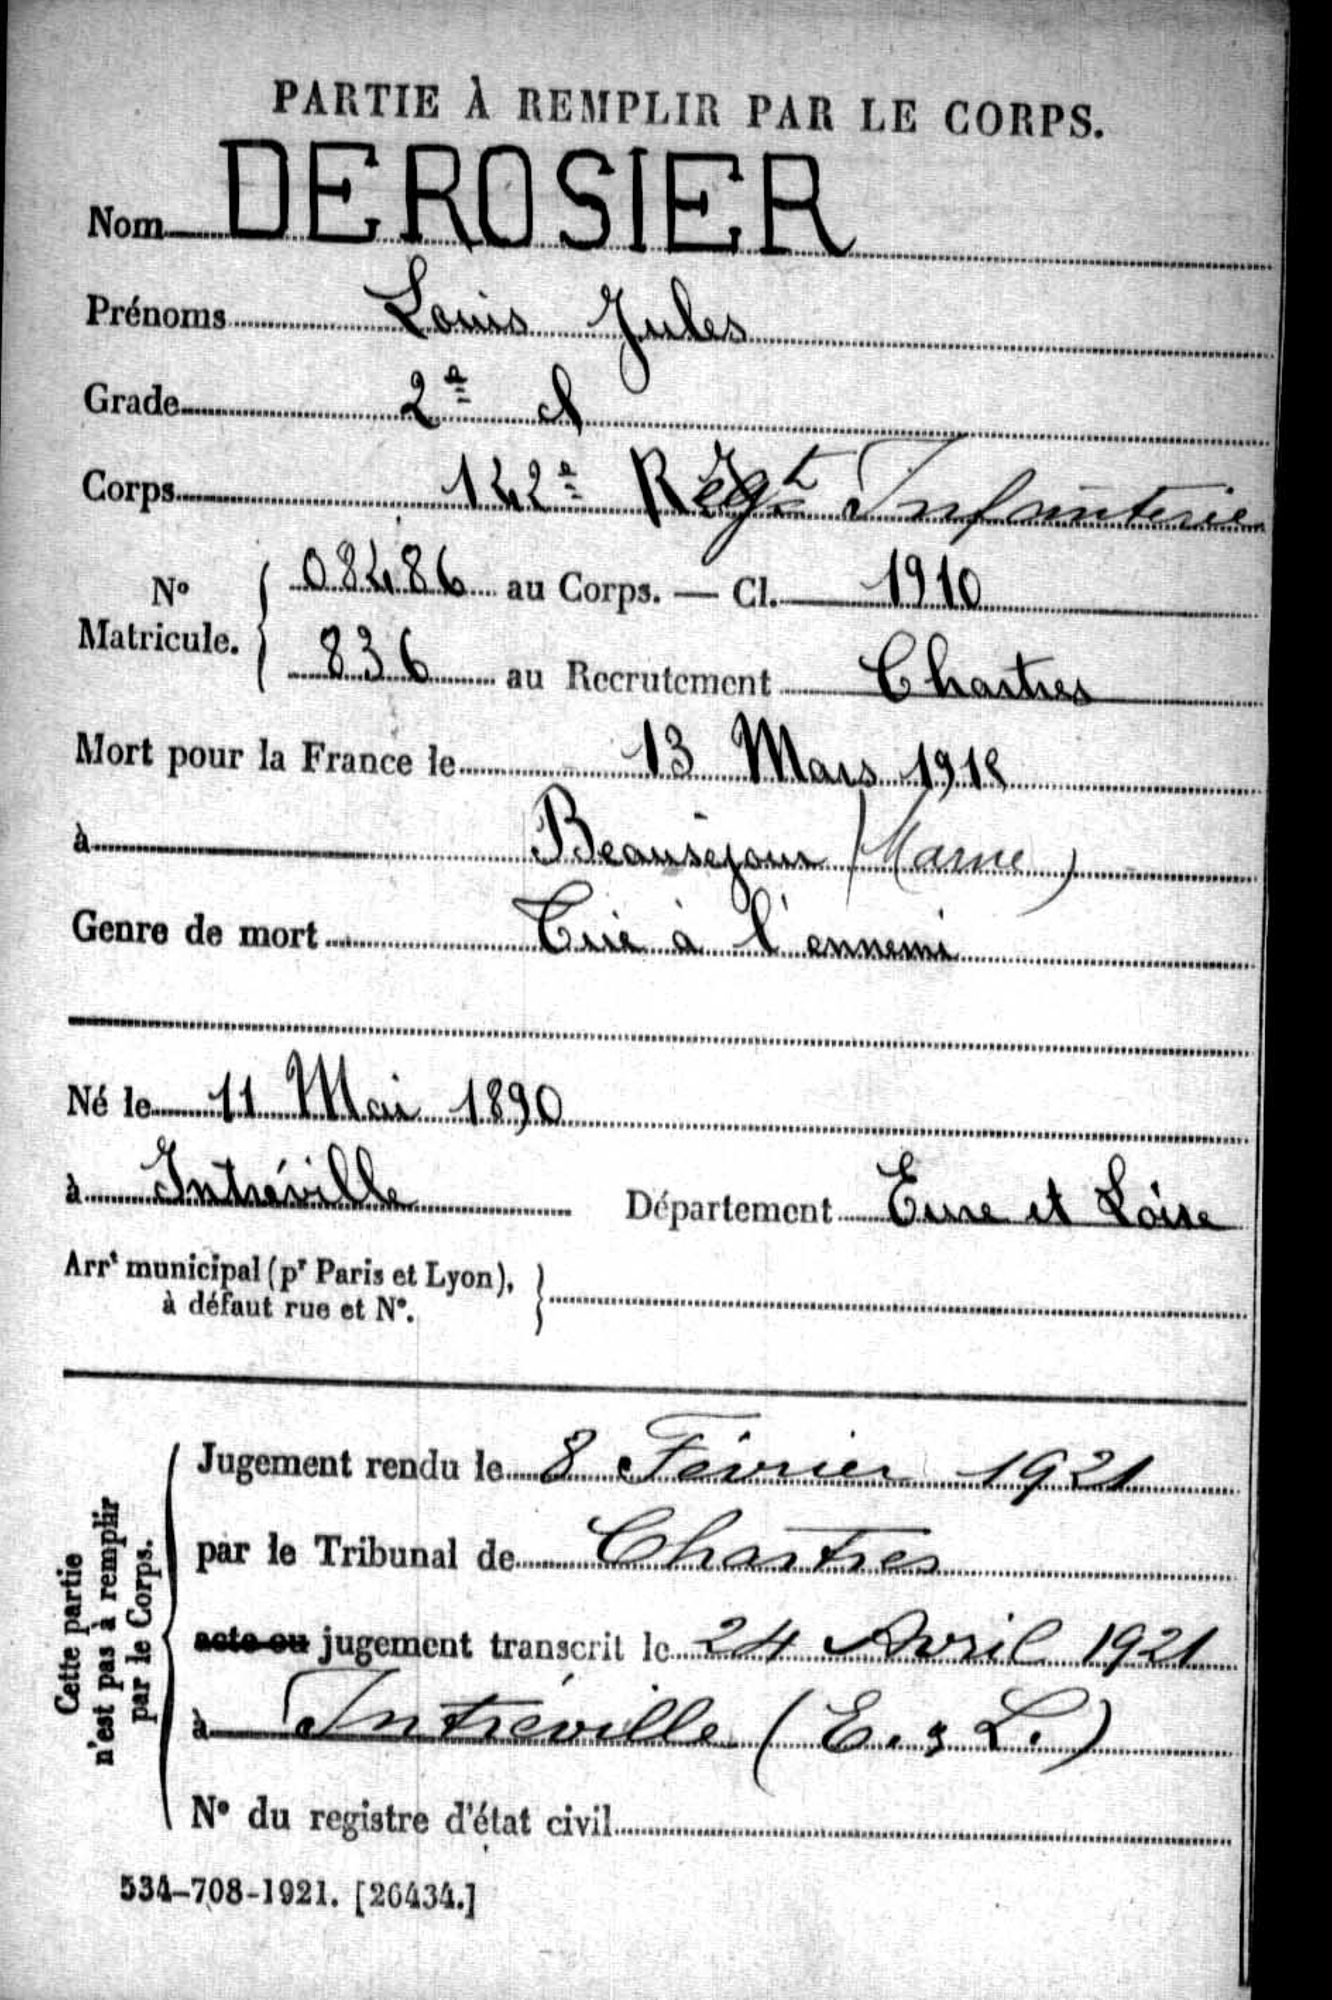 PARTIE À REMPLIR PAR LE CORPS.
Nom DEROSIER
Prénoms Louis Jules
Grade 2e cl
Corps 142e Régt Infanterie
No Matricule. 08486 au Corps. — Cl. 1910
836 au Recrutement Chartres
Mort pour la France le 13 Mars
à Beauséjour (Marne)
Genre de mort Tué à l'ennemi
Né le 11 Mai 1890
à Intréville Département Eure et Loire
Arrt municipal (pr Paris et Lyon),
à défaut rue et No.
Cette partie
n'est pas à remplir
par le Corps.
Jugement rendu le 8 Février 1921
par le Tribunal de Chartres
acte ou jugement transcrit le 24 Avril 1921
à Intréville (E. & L.)
No du registre d'état civil
534-708-1921. [26434.]